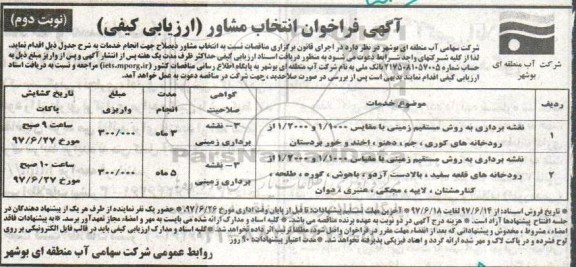 آگهی فراخوان انتخاب مشاور (ارزیابی کیفی)
(نوبت دوم)
شرکت آب منطقه ای
بوشهر
شرکت سهامی آب منطقه ای بوشهر در نظر دارد در اجرای قانون برگزاری مناقصات نسبت به انتخاب مشاور ذیصلاح جهت انجام خدمات به شرح جدول ذیل اقدام نماید.
لذا از کلیه شرکتهای واجد شرایط دعوت می شود به منظور دریافت اسناد ارزیابی کیفی حداکثر ظرف مدت یک هفته پس از انتشار آگهی و پس از واریز مبلغ ذیل به
حساب شماره ۲۱۷۵۰۸۱۰۵۷۰۰۵ بانک ملی به نام شرکت آب منطقه ای بوشهر به پایگاه اطلاع رسانی مناقصات کشور (iets.mporg.ir) مراجعه و نسبت به دریافت اسناد
ارزیابی کیفی اقدام نمایند. بدیهی است پس از بررسی در صورت صلاحدید جهت شرکت در مناقصه دعوت به عمل خواهد آمد.
ردیف
موضوع خدمات
گواهی صلاحیت
مدت انجام
مبلغ واریزی
تاریخ گشایش پاکات
۱
نقشه برداری به روش مستقیم زمینی با مقایس ۱/۱۰۰۰ و ۱/۲۰۰۰ از
رودخانه های کوری، جم، دهنو، اخند و خور بردستان
۳- نقشه برداری زمینی
۳ ماه
۳۰۰/۰۰۰
ساعت ۹ صبح مورخ ۹۷/۶/۲۷
۲
نقشه برداری به روش مستقیم زمینی با مقیاس ۱/۱۰۰۰ و ۱/۲۰۰۰ از
رودخانه های قلعه سفید، بالادست آزدو، باهوش، کوره، طلحه،
کنارمشتان، لاپیه، مجکی، عنبری، زهوان
۳- نقشه برداری زمینی
۵ ماه
۳۰۰/۰۰۰
ساعت ۱۰ صبح مورخ ۹۷/۶/۲۷
* تاریخ فروش اسناد: از ۹۷/۶/۱۲ لغایت ۹۷/۶/۱۸ * آخرین مهلت تسلیم پیشنهادات: تا قبل از پایان وقت اداری مورخ ۹۷/۶/۲۶. * حضور یک نفر نماینده از طرف هر یک از پیشنهاد دهندگان در
جلسه افتتاح پیشنهادها آزاد است. * هزینه درج آگهی در دو نوبت به عهده برنده مناقصه می باشد. * کلیه اسناد و مدارک ارائه شده می بایست به مهر و امضاء مجاز تعهدآور برسد. * به پیشنهادات فاقد
امضاء، مشروط، مخدوش و پیشنهاداتی که بعد از انقضاء مهلت مقرر در فراخوان واصل شود، مطلقا ترتیب اثر داده نخواهد شد. * کلیه اسناد و مدارک ارزیابی کیفی باید در قالب فایل الکترونیکی بر روی
لوح فشرده و در پاکت لاک و مهر شده ارائه گردد و اهداء فیزیکی پذیرفته نخواهد شد. * مدت اعتبار پیشنهادات: ۹۰ روز.
روابط عمومی شرکت سهامی آب منطقه ای بوشهر